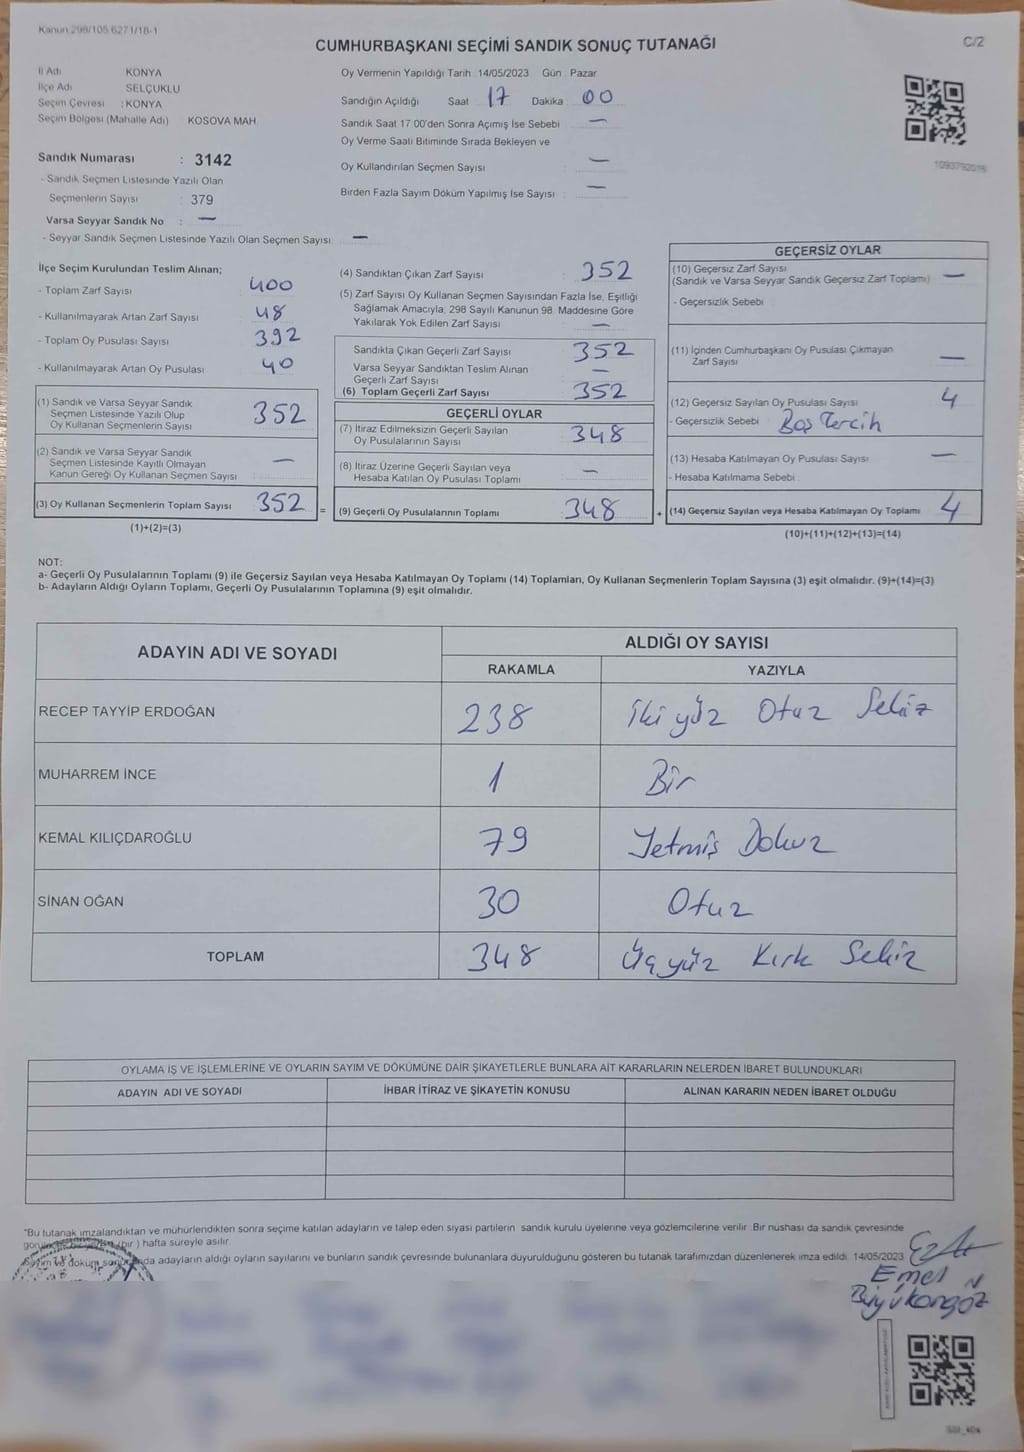 Kanun 298/105 6271/18-1
CUMHURBAŞKANI SEÇİMİ SANDIK SONUÇ TUTANAĞI
C/2
İl Adı KONYA
İlçe Adı SELÇUKLU
Seçim Çevresi : KONYA
Seçim Bölgesi (Mahalle Adı) KOSOVA MAH.
Oy Vermenin Yapıldığı Tarih 14/05/2023 Gün Pazar
Sandığın Açıldığı Saat 17 Dakika 00
Sandık Saat 17:00'den Sonra Açımış İse Sebebi —
Oy Verme Saati Bitiminde Sırada Bekleyen ve
Oy Kullandırılan Seçmen Sayısı —
Birden Fazla Sayım Döküm Yapılmış İse Sayısı —
Sandık Numarası : 3142
- Sandık Seçmen Listesinde Yazılı Olan
Seçmenlerin Sayısı : 379
Varsa Seyyar Sandık No : —
- Seyyar Sandık Seçmen Listesinde Yazılı Olan Seçmen Sayısı: —
İlçe Seçim Kurulundan Teslim Alınan;
- Toplam Zarf Sayısı 400
- Kullanılmayarak Artan Zarf Sayısı 48
- Toplam Oy Pusulası Sayısı 392
- Kullanılmayarak Artan Oy Pusulası 40
(1) Sandık ve Varsa Seyyar Sandık
Seçmen Listesinde Yazılı Olup
Oy Kullanan Seçmenlerin Sayısı 352
(2) Sandık ve Varsa Seyyar Sandık
Seçmen Listesinde Kayıtlı Olmayan
Kanun Gereği Oy Kullanan Seçmen Sayısı —
(3) Oy Kullanan Seçmenlerin Toplam Sayısı 352 =
(1)+(2)=(3)
(4) Sandıktan Çıkan Zarf Sayısı : 352
(5) Zarf Sayısı Oy Kullanan Seçmen Sayısından Fazla İse, Eşitliği
Sağlamak Amacıyla, 298 Sayılı Kanunun 98. Maddesine Göre
Yakılarak Yok Edilen Zarf Sayısı —
Sandıkta Çıkan Geçerli Zarf Sayısı 352
Varsa Seyyar Sandıktan Teslim Alınan
Geçerli Zarf Sayısı —
(6) Toplam Geçerli Zarf Sayısı 352
GEÇERLİ OYLAR
(7) İtiraz Edilmeksizin Geçerli Sayılan
Oy Pusulalarının Sayısı 348
(8) İtiraz Üzerine Geçerli Sayılan veya
Hesaba Katılan Oy Pusulası Toplamı —
(9) Geçerli Oy Pusulalarının Toplamı 348 +
GEÇERSİZ OYLAR
(10) Geçersiz Zarf Sayısı
(Sandık ve Varsa Seyyar Sandık Geçersiz Zarf Toplamı) —
- Geçersizlik Sebebi
(11) İçinden Cumhurbaşkanı Oy Pusulası Çıkmayan
Zarf Sayısı —
(12) Geçersiz Sayılan Oy Pusulası Sayısı 4
- Geçersizlik Sebebi : Boş Tercih
(13) Hesaba Katılmayan Oy Pusulası Sayısı —
- Hesaba Katılmama Sebebi
(14) Geçersiz Sayılan veya Hesaba Katılmayan Oy Toplamı 4
(10)+(11)+(12)+(13)=(14)
NOT:
a- Geçerli Oy Pusulalarının Toplamı (9) ile Geçersiz Sayılan veya Hesaba Katılmayan Oy Toplamı (14) Toplamları, Oy Kullanan Seçmenlerin Toplam Sayısına (3) eşit olmalıdır. (9)+(14)=(3)
b- Adayların Aldığı Oyların Toplamı, Geçerli Oy Pusulalarının Toplamına (9) eşit olmalıdır.
ADAYIN ADI VE SOYADI
ALDIĞI OY SAYISI
RAKAMLA YAZIYLA
RECEP TAYYİP ERDOĞAN 238 iki yüz Otuz Sekiz
MUHARREM İNCE 1 Bir
KEMAL KILIÇDAROĞLU 79 Yetmiş Dokuz
SİNAN OĞAN 30 Otuz
TOPLAM 348 Üçyüz Kırk Sekiz
OYLAMA İŞ VE İŞLEMLERİNE VE OYLARIN SAYIM VE DÖKÜMÜNE DAİR ŞİKAYETLERLE BUNLARA AİT KARARLARIN NELERDEN İBARET BULUNDUKLARI
ADAYIN ADI VE SOYADI İHBAR İTİRAZ VE ŞİKAYETİN KONUSU ALINAN KARARIN NEDEN İBARET OLDUĞU
*Bu tutanak imzalandıktan ve mühürlendikten sonra seçime katılan adayların ve talep eden siyasi partilerin sandık kurulu üyelerine veya gözlemcilerine verilir. Bir nüshası da sandık çevresinde
(bir) hafta süreyle asılır.
Sayım ve döküm adayların aldığı oyların sayılarını ve bunların sandık çevresinde bulunanlara duyurulduğunu gösteren bu tutanak tarafımızdan düzenlenerek imza edildi. 14/05/2023
Emel
Büyükongöz